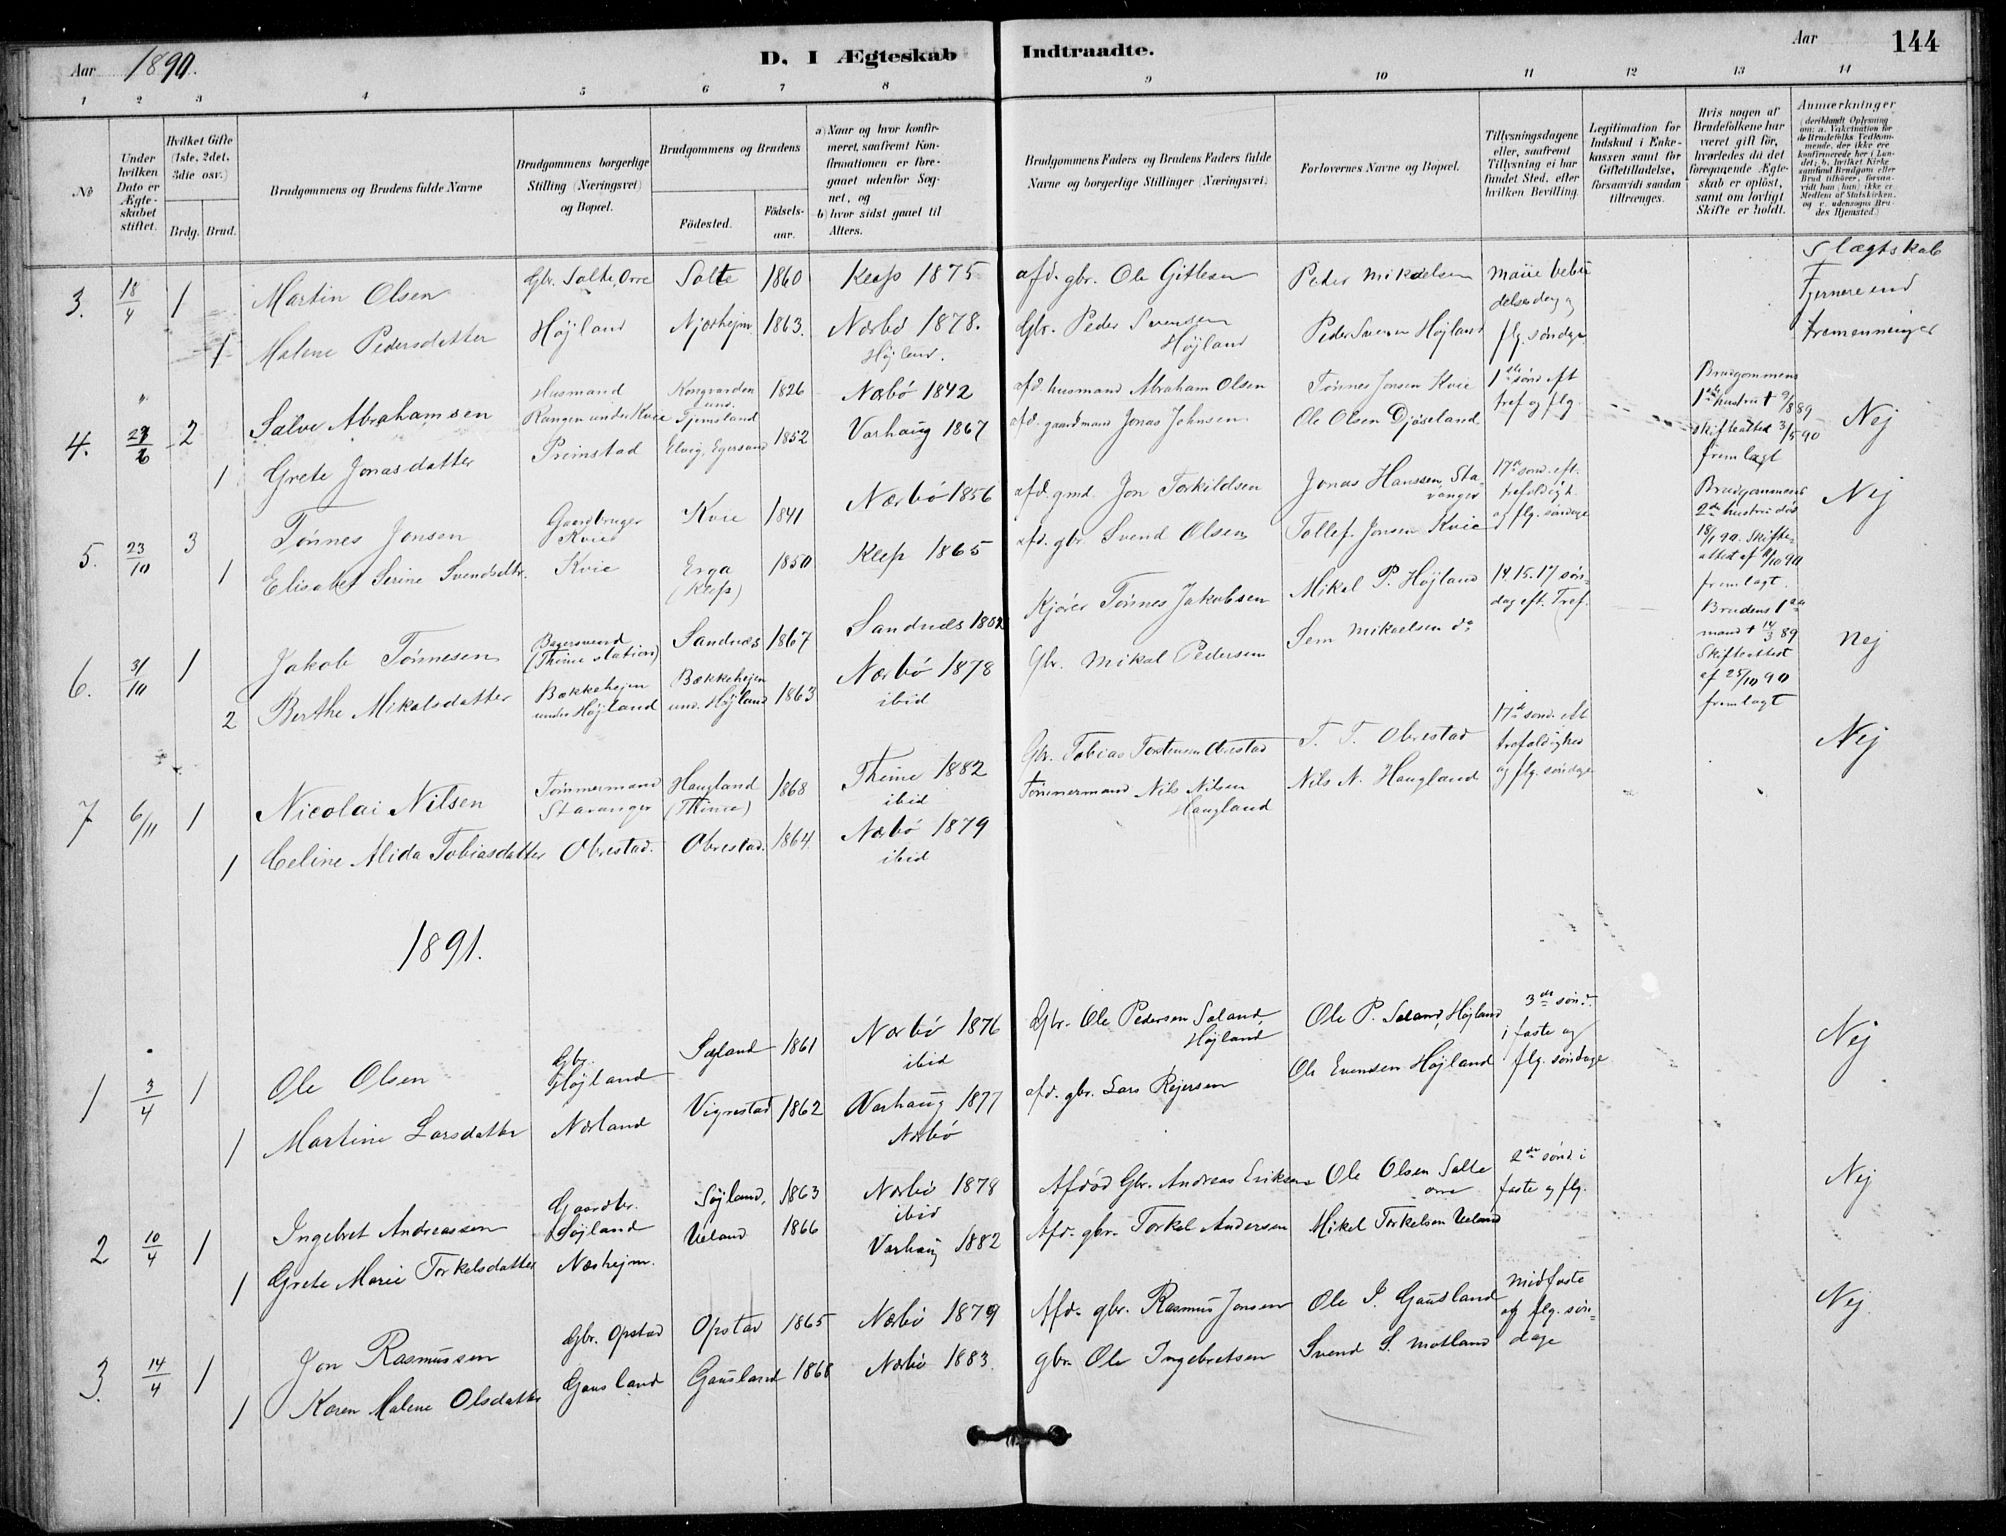 Aar 1890.
D. I Ægteskab Indtraadte.
Aar 144
1 2 3 4 5 6 7 8 9 10 11 12 13 14
No
Under hvilken Dato er Ægteskabet stiftet.
Hvilket Gifte (1ste, 2det, 3die osv.)
Brdg. Brud.
Brudgommens og Brudens fulde Navne
Brudgommens borgerlige Stilling (Næringsvei) og Bopæl.
Brudgommens og Brudens
Fødested.
Fødselsaar.
a) Naar og hvor konfirmeret, saafremt Konfirmationen er foregaaet udenfor Sognet, og
b) hvor sidst gaaet til Alters.
Brudgommens Faders og Brudens Faders fulde Navne og borgerlige Stillinger (Næringsvei)
Forlovernes Navne og Bopæl.
Tillysningsdagene eller, saafremt Tillysning ei har fundet Sted, efter hvilken Bevilling.
Legitimation for Indskud i Enkekassen samt for Giftetilladelse, forsaavidt saadan tiltrænges.
Hvis nogen af Brudefolkene har været gift før, hvorledes da det foregaaende Ægteskab er opløst, samt om lovligt Skifte er holdt.
Anmærkninger (deriblandt Oplysning om: a. Vakcination for de Brudefolks Vedkommende, der ikke ere konfirmerede her i Landet; b. hvilket Kirkesamfund Brudgom eller Brud tilhører, forsaavidt han (hun) ikke er Medlem af Statskirken, og c. udensogns Brudes Hjemsted.)
3. 18/4 1 Martin Olsen Gbr. Salte, Orre Salte 1860 Klep 1875 afd. gbr. Ole Gitlesen Peder Mikaelsen Marie bebudelsesdag og Slægtskab Fjernere end tremenninger
1 Malene Pedersdatter Højland Njærhejm 1863. Nærbø 1878. Højland. Gbr. Peder Svensen Højland Peder Svensen Højland flg. søndage
4. 27/6 2 Salve Abrahamsen Husmand Rangen under Kvie Kongvarden und. Tjemsland 1826 Nærbø 1842 afd. husmand Abraham Olsen Tønnes Jonsen Kvie 1ste sønd. eft. tref og flg. Brudgommens 1ste hustru † 9/8 89 skifteattest 3/5 90 fremlagt Nej
1 Grete Jonasdatter Primstad Elvig, Egersund 1852 Varhaug 1867 afd. gaardmand Jonas Johnsen Ole Olsen Djøseland
5. 23/10 3 Tønnes Jonsen Gaardbruger Kvie Kvie 1841 Nærbø 1856 afd. gmd. Jon Torkildsen Jonas Hanssen, Stavanger 17de sønd. eft. trefoldigh. og flg. søndage Brudgommens 2den hustru død 18/1 90. Skifteattest af 11/10 90 fremlagt. Nej
1 Elisabet Serine Svendsdtr. Kvie Erga (Klep) 1850 Klep 1865 afd. gbr. Svend Olsen Tollef Jonsen Kvie
6. 31/10 1 Jakob Tønnesen Bagersvend (Thime station) Sandnæs 1867 Sandnæs Kjører Tønnes Jakobsen Mikal P. Højland 14. 15. 17 søndag eft. Tref. Brudens 1ste mand † 14/3 89 Skifteattest af 25/10 90 fremlagt Nej
2 Berthe Mikalsdatter Bækkehejen under Højland Bækkehejen und. Højland 1863 Nærbø 1878 ibid Gbr. Mikal Pedersen Sem Mikaelsen do
7 6/11 1 Nicolai Nilsen Tømmermand Stavanger Haugland (Thime) 1868 Thime 1882 ibid Gbr. Tobias Tostensen Obrestad T. T. Obrestad 17de sønd. eft trefoldighed og flg. søndage Nej
1 Celine Alida Tobiasdatter Obrestad. Obrestad. 1864. Nærbø 1879 ibid Tømmermand Nils Nilsen Haugland Nils N. Haugland
1891.
1 3/4 1 Ole Olsen Gbr. Højland Sæland 1861 Nærbø 1876 ibid Gbr. Ole Pedersen Sæland, Højland Ole P. Sæland, Højland 3de sønd. i faste og flg. søndage Nej
1 Martine Larsdatter Nærland Vigrestad 1862 Varhaug 1877 Nærbø afd. gbr. Lars Rejersen Ole Evensen Højland
2 10/4 1 Ingebret Andreassen Gaardbr. Søjland Søjland, 1863 Nærbø 1878 ibid Afdød Gbr. Andreas Eriksen Ole Olsen Salte Orre 2den sønd. i faste og flg. Nej
1 Grete Marie Torkelsdatter Nærhejm. Ueland 1866 Varhaug 1882 Afd. gbr. Torkel Andersen Mikel Torkelsen Ueland
3. 14/4 1 Jon Rasmussen Gbr. Opstad Opstad 1865 Nærbø 1879 Afd. gbr. Rasmus Jonsen Ole I. Gausland Midfaste og flg. søndage Nej
1 Karen Malene Olsdatter Gausland Gausland 1868 Nærbø 1883. gbr. Ole Ingebretsen Svend S. Motland